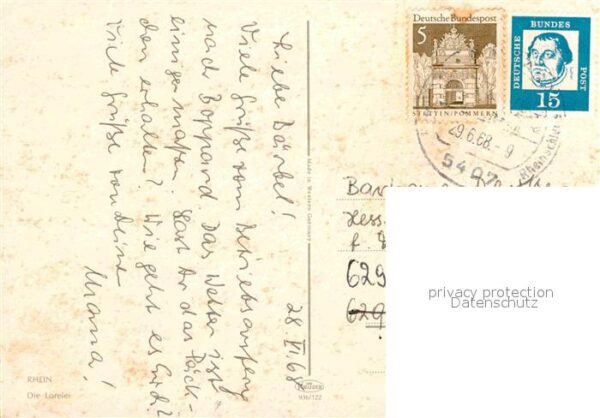 28. VI. 68
Liebe Bärbel!
Viele Grüße vom Betriebsausflug
nach Boppard. Das Wetter ist
einigermaßen. Hast Du das Päck-
chen erhalten? Wie geht es Euch?
Viele Grüße von Deiner
Mama!
RHEIN
Die Lorelei
Made in Western Germany
936/122
5
Deutsche Bundespost
STETTIN/POMMERN
DEUTSCHE
BUNDES
POST
15
29.6.68.-9
5407
Hess.
629
629
privacy protection
Datenschutz